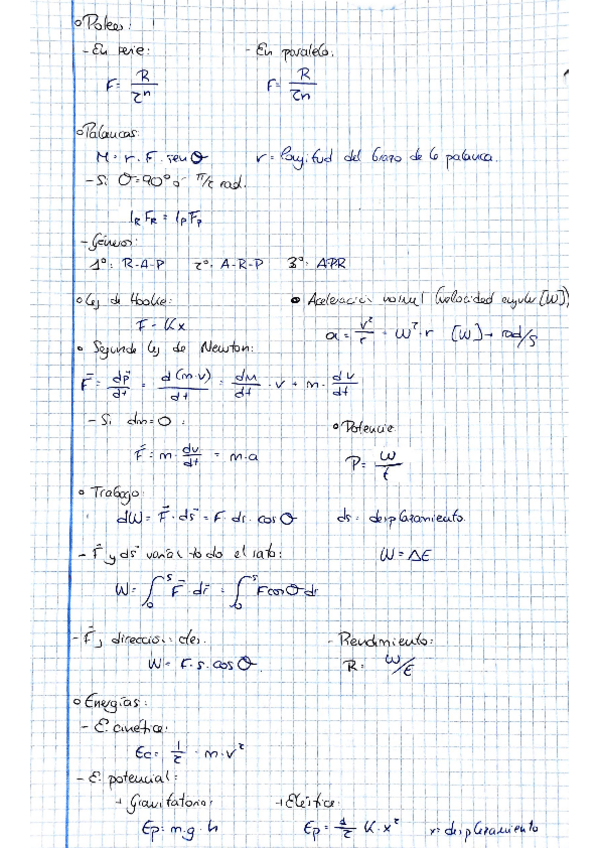 Poleas:
- En serie: - En paralelo:
F = R/2ⁿ F = R/2n
Palancas:
M = r · F · sen θ r = longitud del brazo de la palanca.
- Si θ = 90° o π/2 rad.
l_R F_R = l_P F_P
- Géneros:
1º: R-A-P 2º: A-R-P 3º: APR
Ley de Hooke: Aceleración normal (velocidad angular [W])
F = Kx
a = v²/r = W² · r [W] → rad/s
Segunda ley de Newton:
F⃗ = dp⃗/dt = d(m·v)/dt = dM/dt · v + m · dv/dt
- Si dm = 0: Potencia
F⃗ = m · dv/dt = m·a P = W/t
Trabajo:
dW = F⃗ · ds⃗ = F · ds · cos θ ds = desplazamiento.
- F⃗ y ds⃗ varía todo el rato: W = ΔE
W = ∫₀ˢ F⃗ dr⃗ = ∫₀ˢ F cos θ dr
- F⃗ y dirección ctes. - Rendimiento:
W = F · s · cos θ. R = W/E
Energías:
- E. cinética:
Ec = 1/2 · m·v²
- E. potencial:
→ Gravitatoria: → Elástica:
Ep = m·g·h Ep = 1/2 K·x² x = desplazamiento